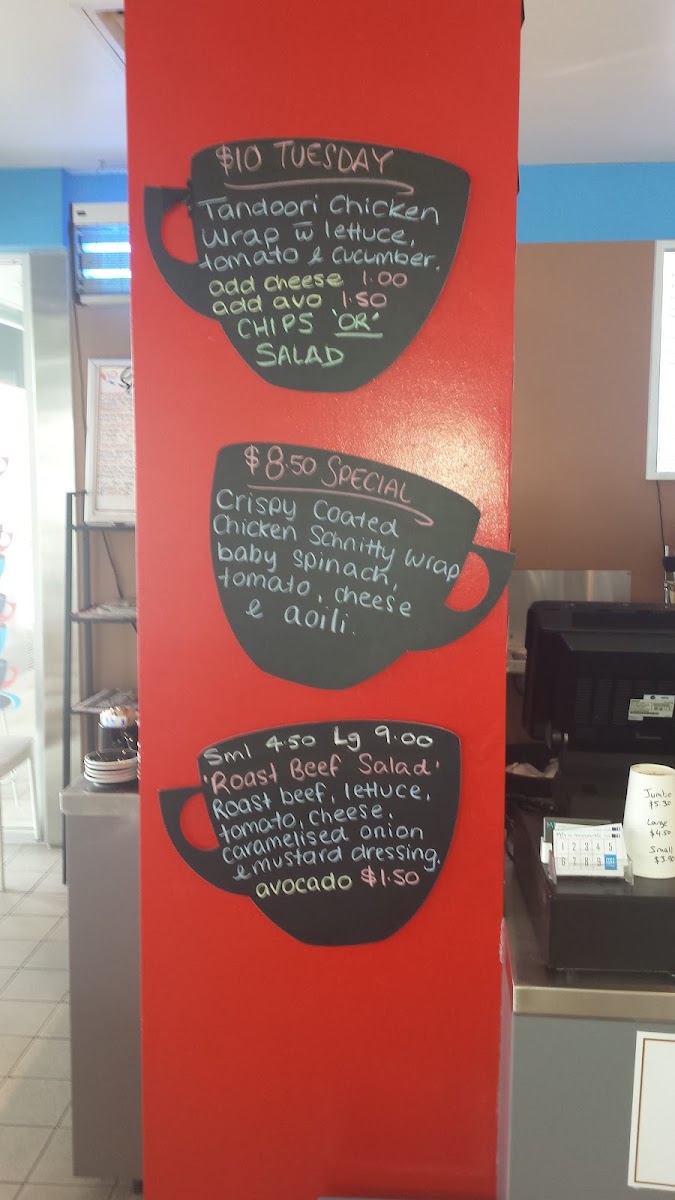 $10 TUESDAY
Tandoori Chicken
Wrap w lettuce,
tomato & cucumber.
add cheese 1.00
add avo 1.50
CHIPS 'OR'
SALAD
$8.50 SPECIAL
Crispy Coated
Chicken Schnitty Wrap
baby spinach,
tomato, cheese
& aoili.
Sml 4.50 Lg 9.00
'Roast Beef Salad'
Roast beef, lettuce,
tomato, cheese,
caramelised onion
& mustard dressing.
avocado $1.50
Jumbo
$5.30
Large
$4.50
Small
$3.90
1 2 3 4 5
6 7 8 9